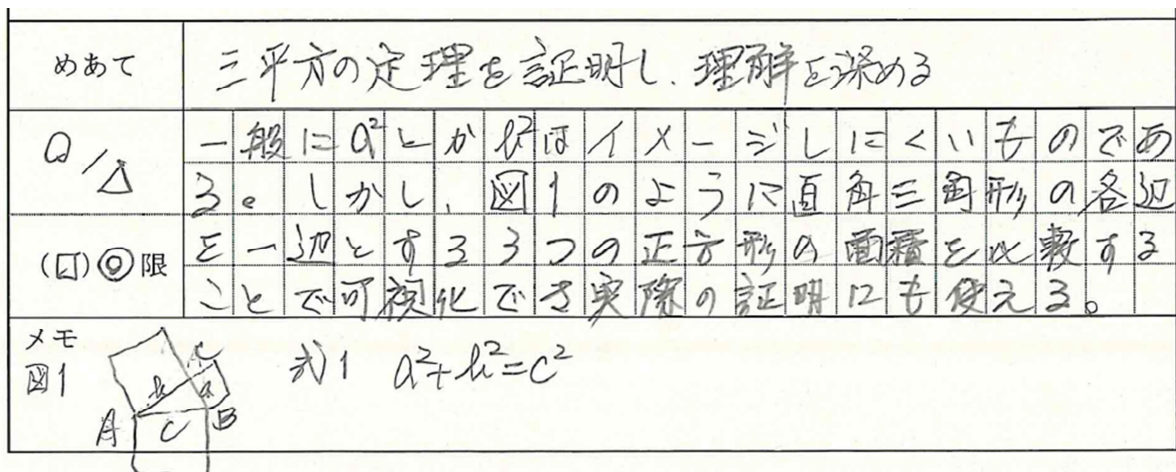 めあて
三平方の定理を証明し、理解を深める
一般にa²とかb²はイメージしにくいものであ
る。しかし、図1のように直角三角形の各辺
を一辺とする3つの正方形の面積を比較する
ことで可視化でき実際の証明にも使える。
限
メモ
図1
式1 a²+b²=c²
C
b a
A c B